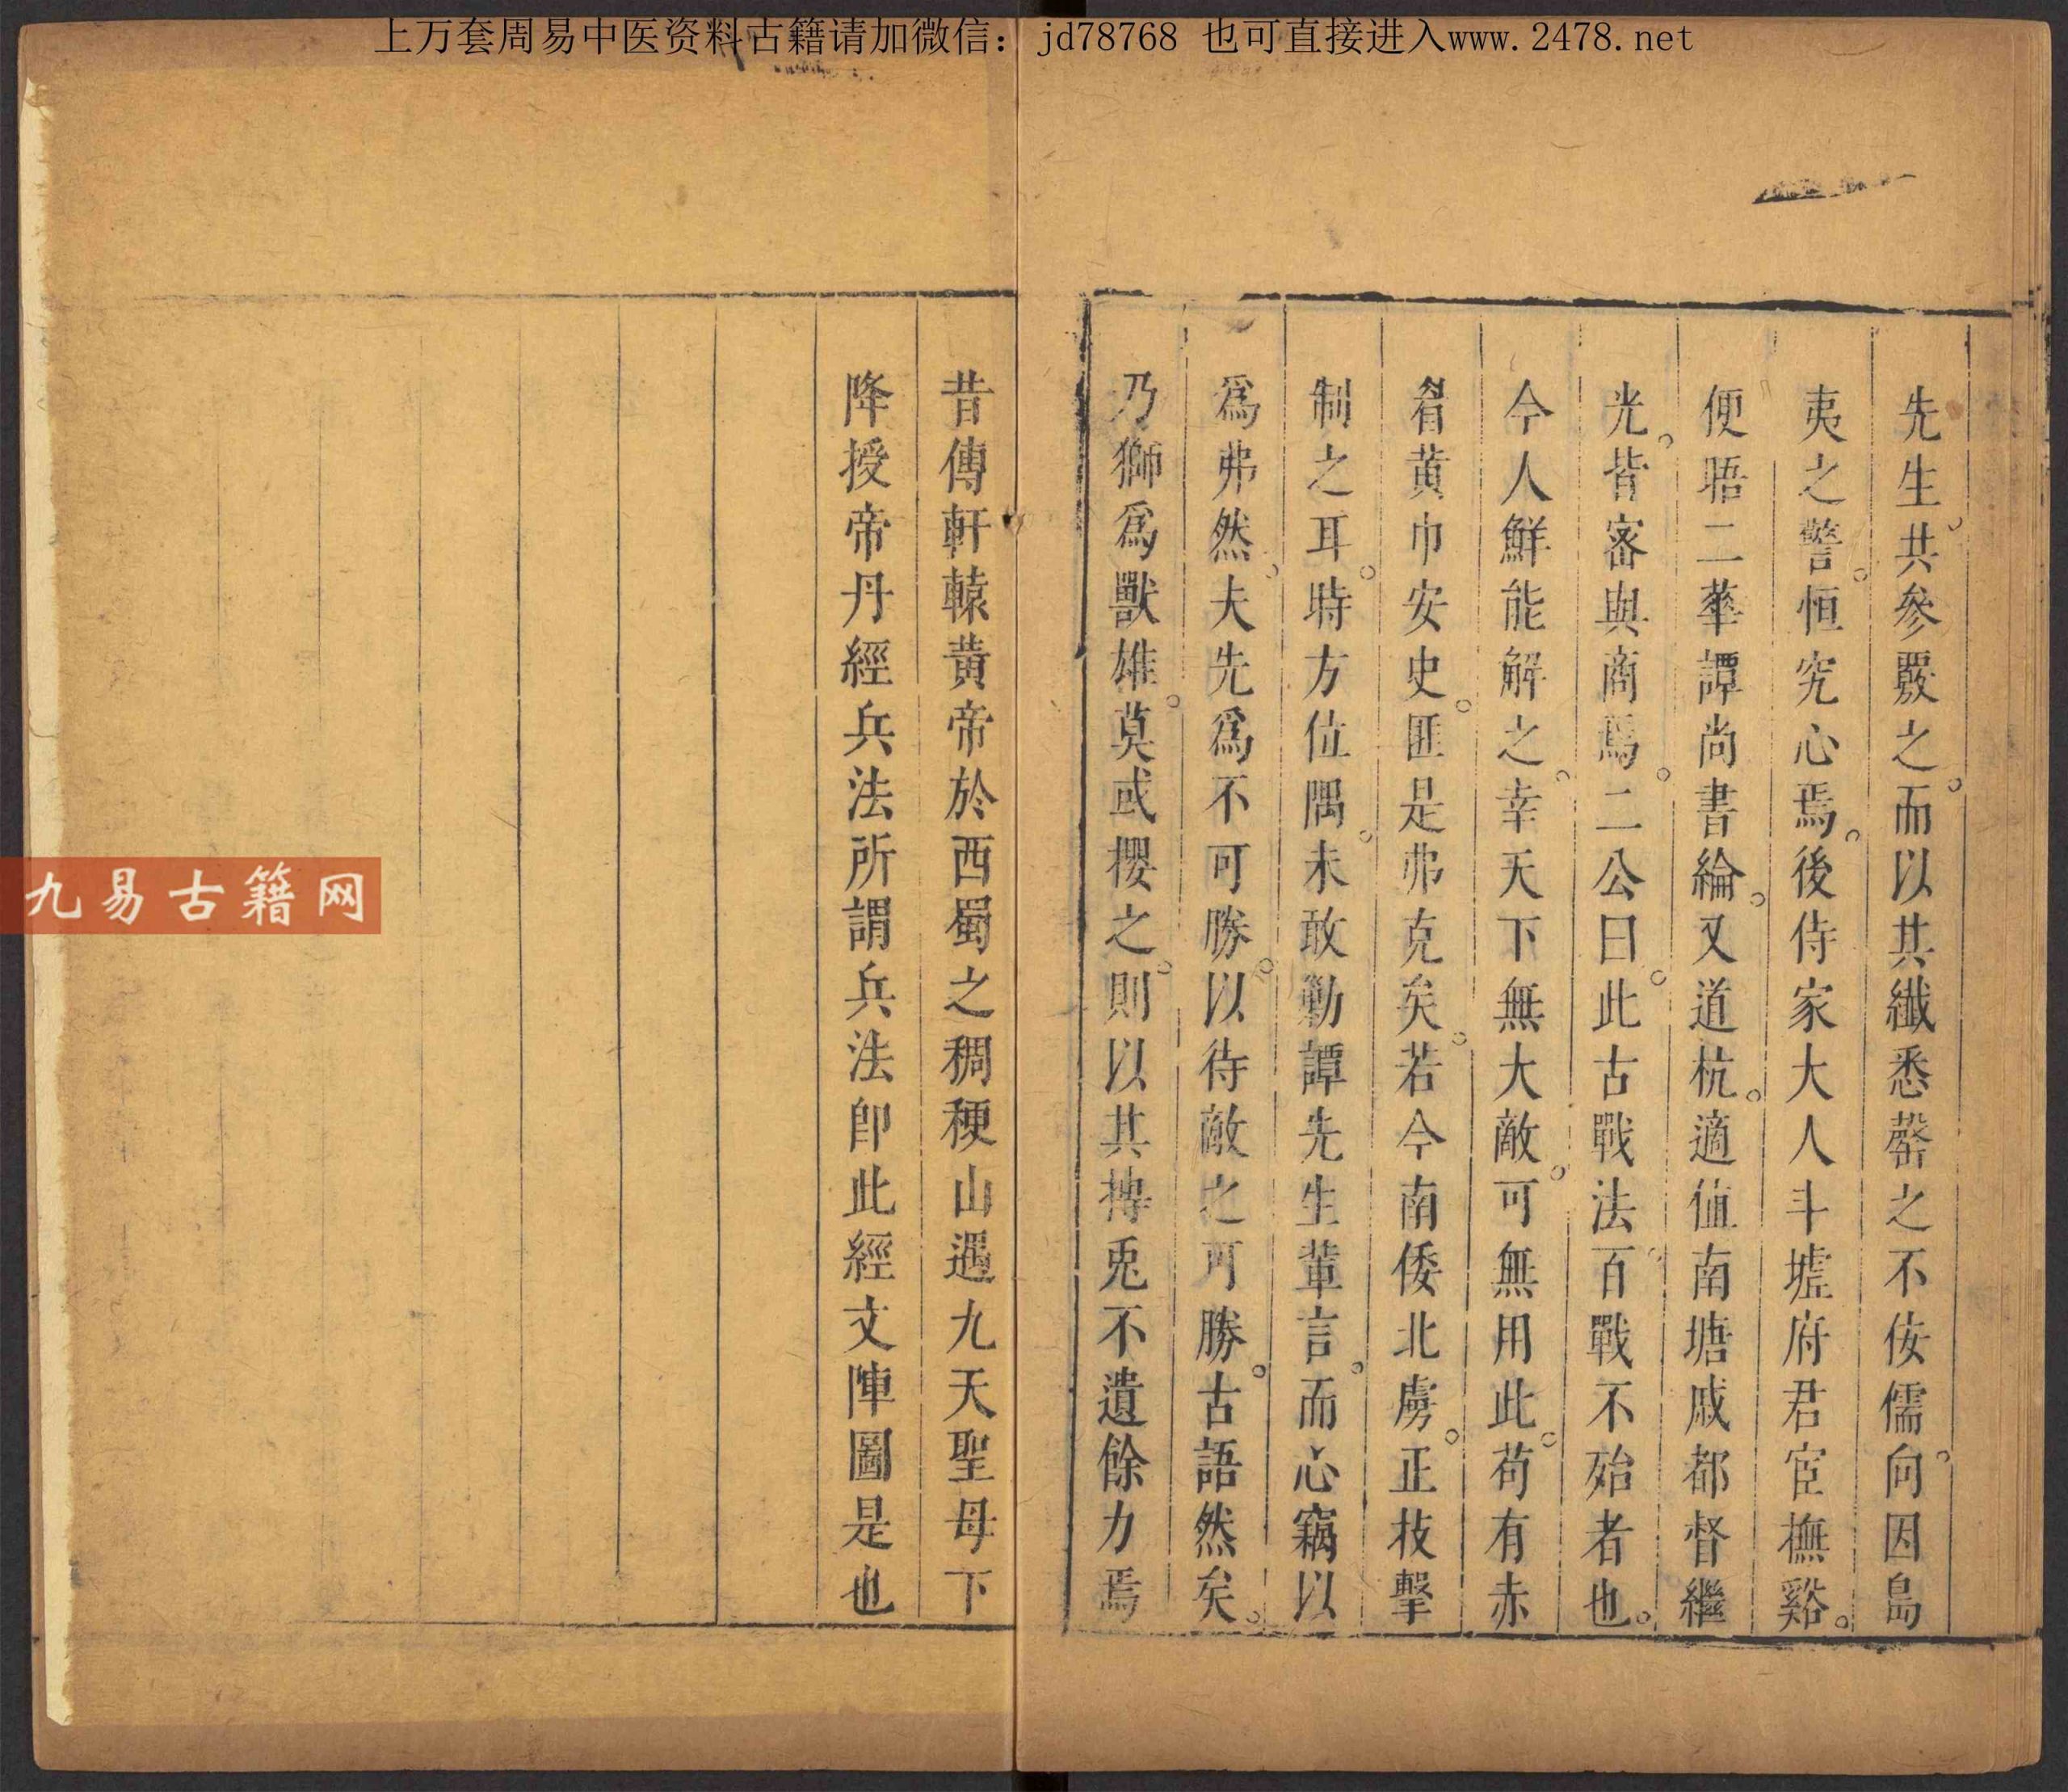 上万套周易中医资料古籍请加微信：jd78768 也可直接进入www.2478.net
先生共參覈之。而以其纎悉罄之不侫儒。向因島
夷之警。恒究心焉。後侍家大人斗墟府君宦撫谿。
便晤二華譚尚書綸。又道杭。適値南塘戚都督繼
光。皆審與商焉。二公曰。此古戰法。百戰不殆者也。
今人鮮能解之。幸天下無大敵。可無用此。苟有赤
眉黄巾安史。匪是弗克矣。若今南倭北虜。正枝擊
制之耳。時方位隅。未敢勦譚先生輩言。而心竊以
爲弗然。夫先爲不可勝。以待敵之可勝。古語然矣。
乃獅爲獸雄。莫或攖之。則以其摶兎不遺餘力焉
昔傳軒轅黄帝於西蜀之稠稉山遇九天聖母下
降授帝丹經兵法所謂兵法卽此經文陣圖是也
九易古籍网